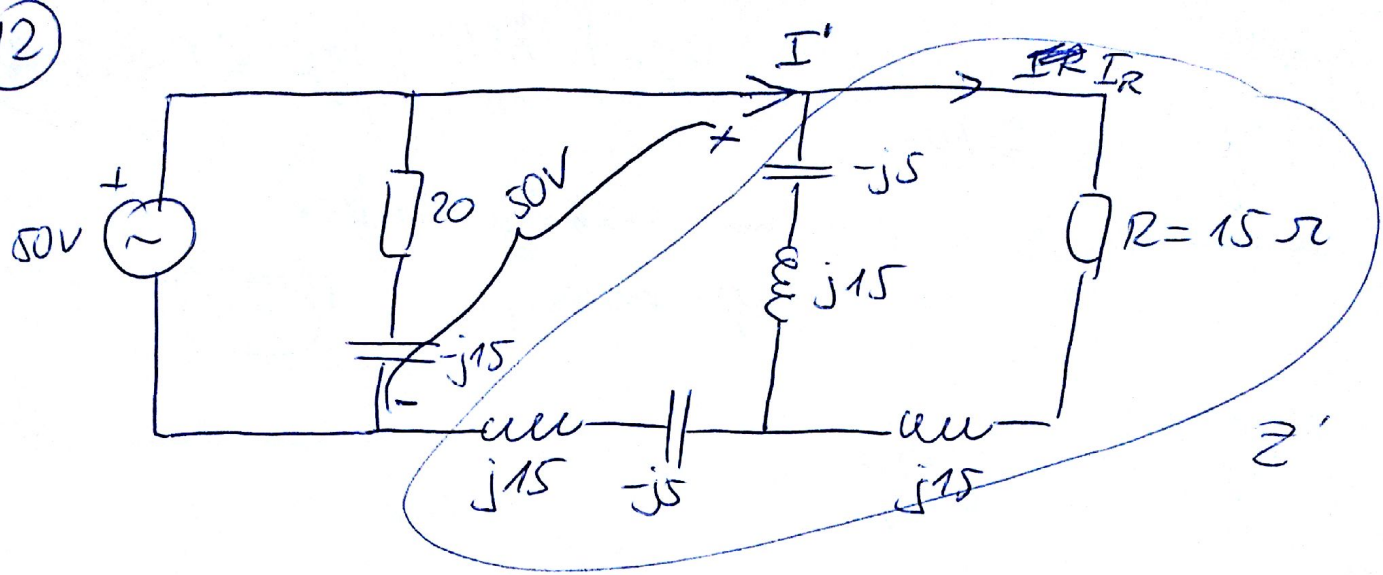 2
I'
I_R
+
50V
~
20
50V
+
-j5
R = 15 Ω
j15
-j15
-
j15
-j5
j15
Z'